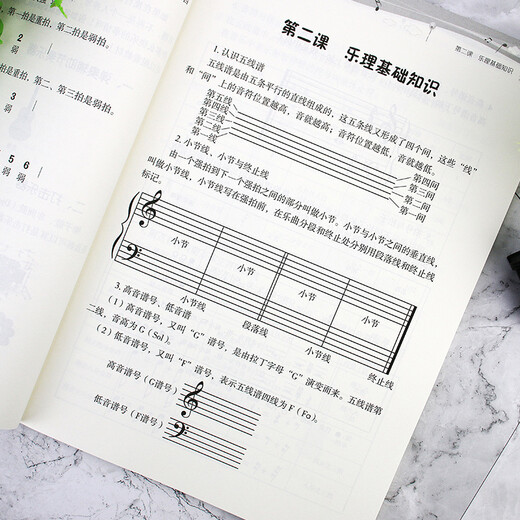 第一拍是重拍，第二拍是弱拍。
2
弱
是重拍，第二、第三拍是弱拍。
3
弱
5 6
弱 弱
第二课 乐理基础知识
第二课 乐理基础知识
1. 认识五线谱
五线谱是由五条平行的直线组成的，这五条线又形成了四个间，这些“线”
和“间”上的音符位置越高，音就越高；音符位置越低，音就越低。
第五线
第四线
第三线
第二线
第一线
第四间
第三间
第二间
第一间
2. 小节线、小节与终止线
由一个强拍到下一个强拍之间的部分叫做小节。小节与小节之间的垂直线，
叫做小节线，小节线写在强拍前，在乐曲分段和终止处分别用段落线和终止线
标记。
小节
小节
小节
小节
小节线
段落线
小节线
终止线
3. 高音谱号、低音谱
（1）高音谱号，又叫“G”谱号，是由拉丁字母“G”演变而来。五线谱第
二线，音高为G（Sol）。
（2）低音谱号，又叫“F”谱号，表示五线谱四线为F（Fa）。
高音谱号（G谱号）
低音谱号（F谱号）